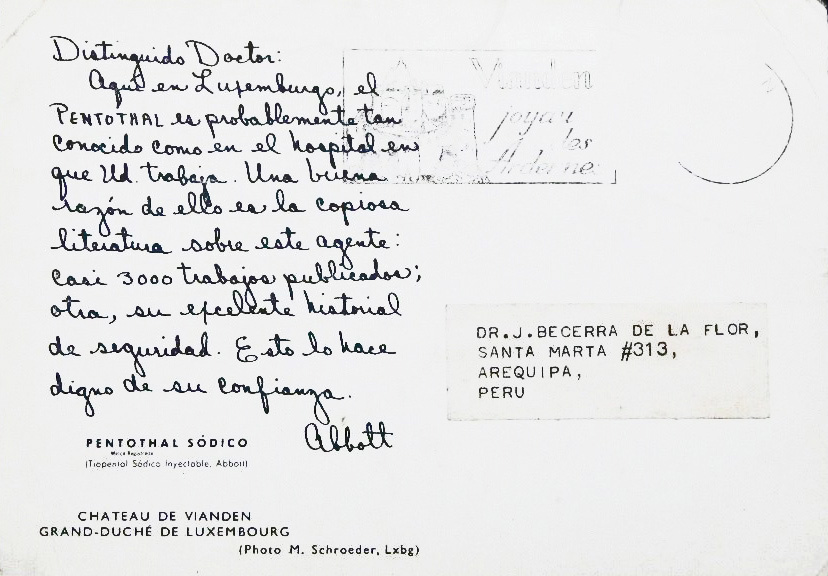 Distinguido Doctor:
Aquí en Luxemburgo, el
PENTOTHAL es probablemente tan
conocido como en el hospital en
que Ud. trabaja. Una buena
razón de ello es la copiosa
literatura sobre este agente:
casi 3000 trabajos publicados;
otra, su excelente historial
de seguridad. Esto lo hace
digno de su confianza.
Abbott
PENTOTHAL SÓDICO
Marca Registrada
(Tiopental Sódico Inyectable, Abbott)
CHATEAU DE VIANDEN
GRAND-DUCHÉ DE LUXEMBOURG
(Photo M. Schroeder, Lxbg)
Vianden
joyau
des
Ardennes
DR.J.BECERRA DE LA FLOR,
SANTA MARTA #313,
AREQUIPA,
PERU